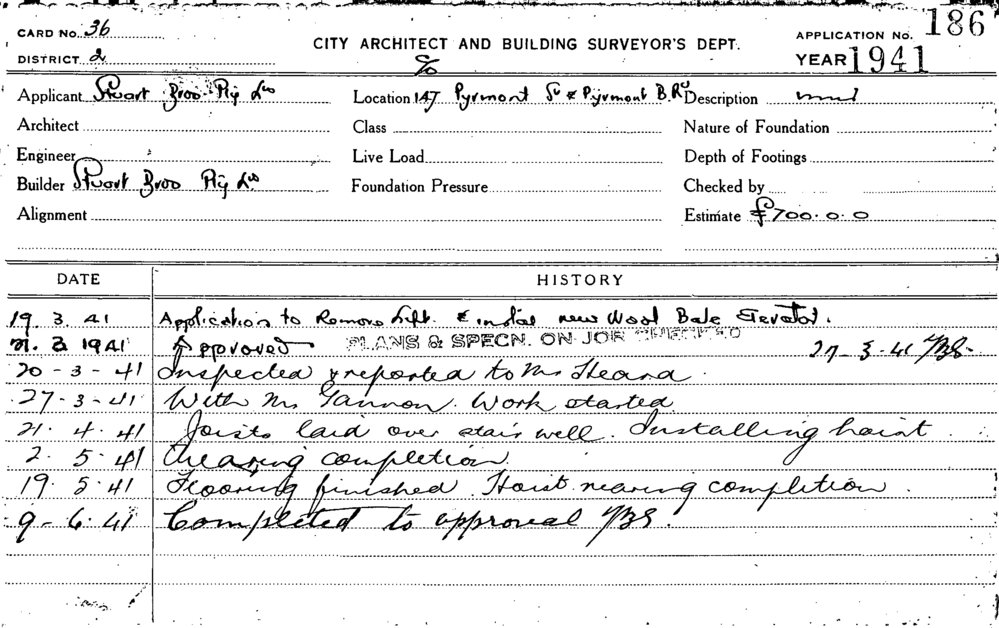 CARD No. 36
186
DISTRICT 2
CITY ARCHITECT AND BUILDING SURVEYOR'S DEPT.
APPLICATION No.
YEAR 1941
c/o
Applicant Stuart Bros Pty Ltd Location 147 Pyrmont St & Pyrmont B. Rd Description
Architect Class Nature of Foundation
Engineer Live Load Depth of Footings
Builder Stuart Bros Pty Ltd Foundation Pressure Checked by
Alignment Estimate £700.0.0
DATE HISTORY
19. 3. 41 Application to Remove Lift & instal new Wool Bale Elevator.
21. 3. 1941 Approved PLANS & SPECN. ON JOB CHECKED 27-3-41
20-3-41 Inspected & reported to Mr Heard
27-3-41 With Mr Gannon. Work started
21. 4. 41 Joists laid over stair well. Installing hoist.
2. 5. 41 Nearing completion
19. 5. 41 Flooring finished. Hoist nearing completion.
9-6. 41 Completed to approval